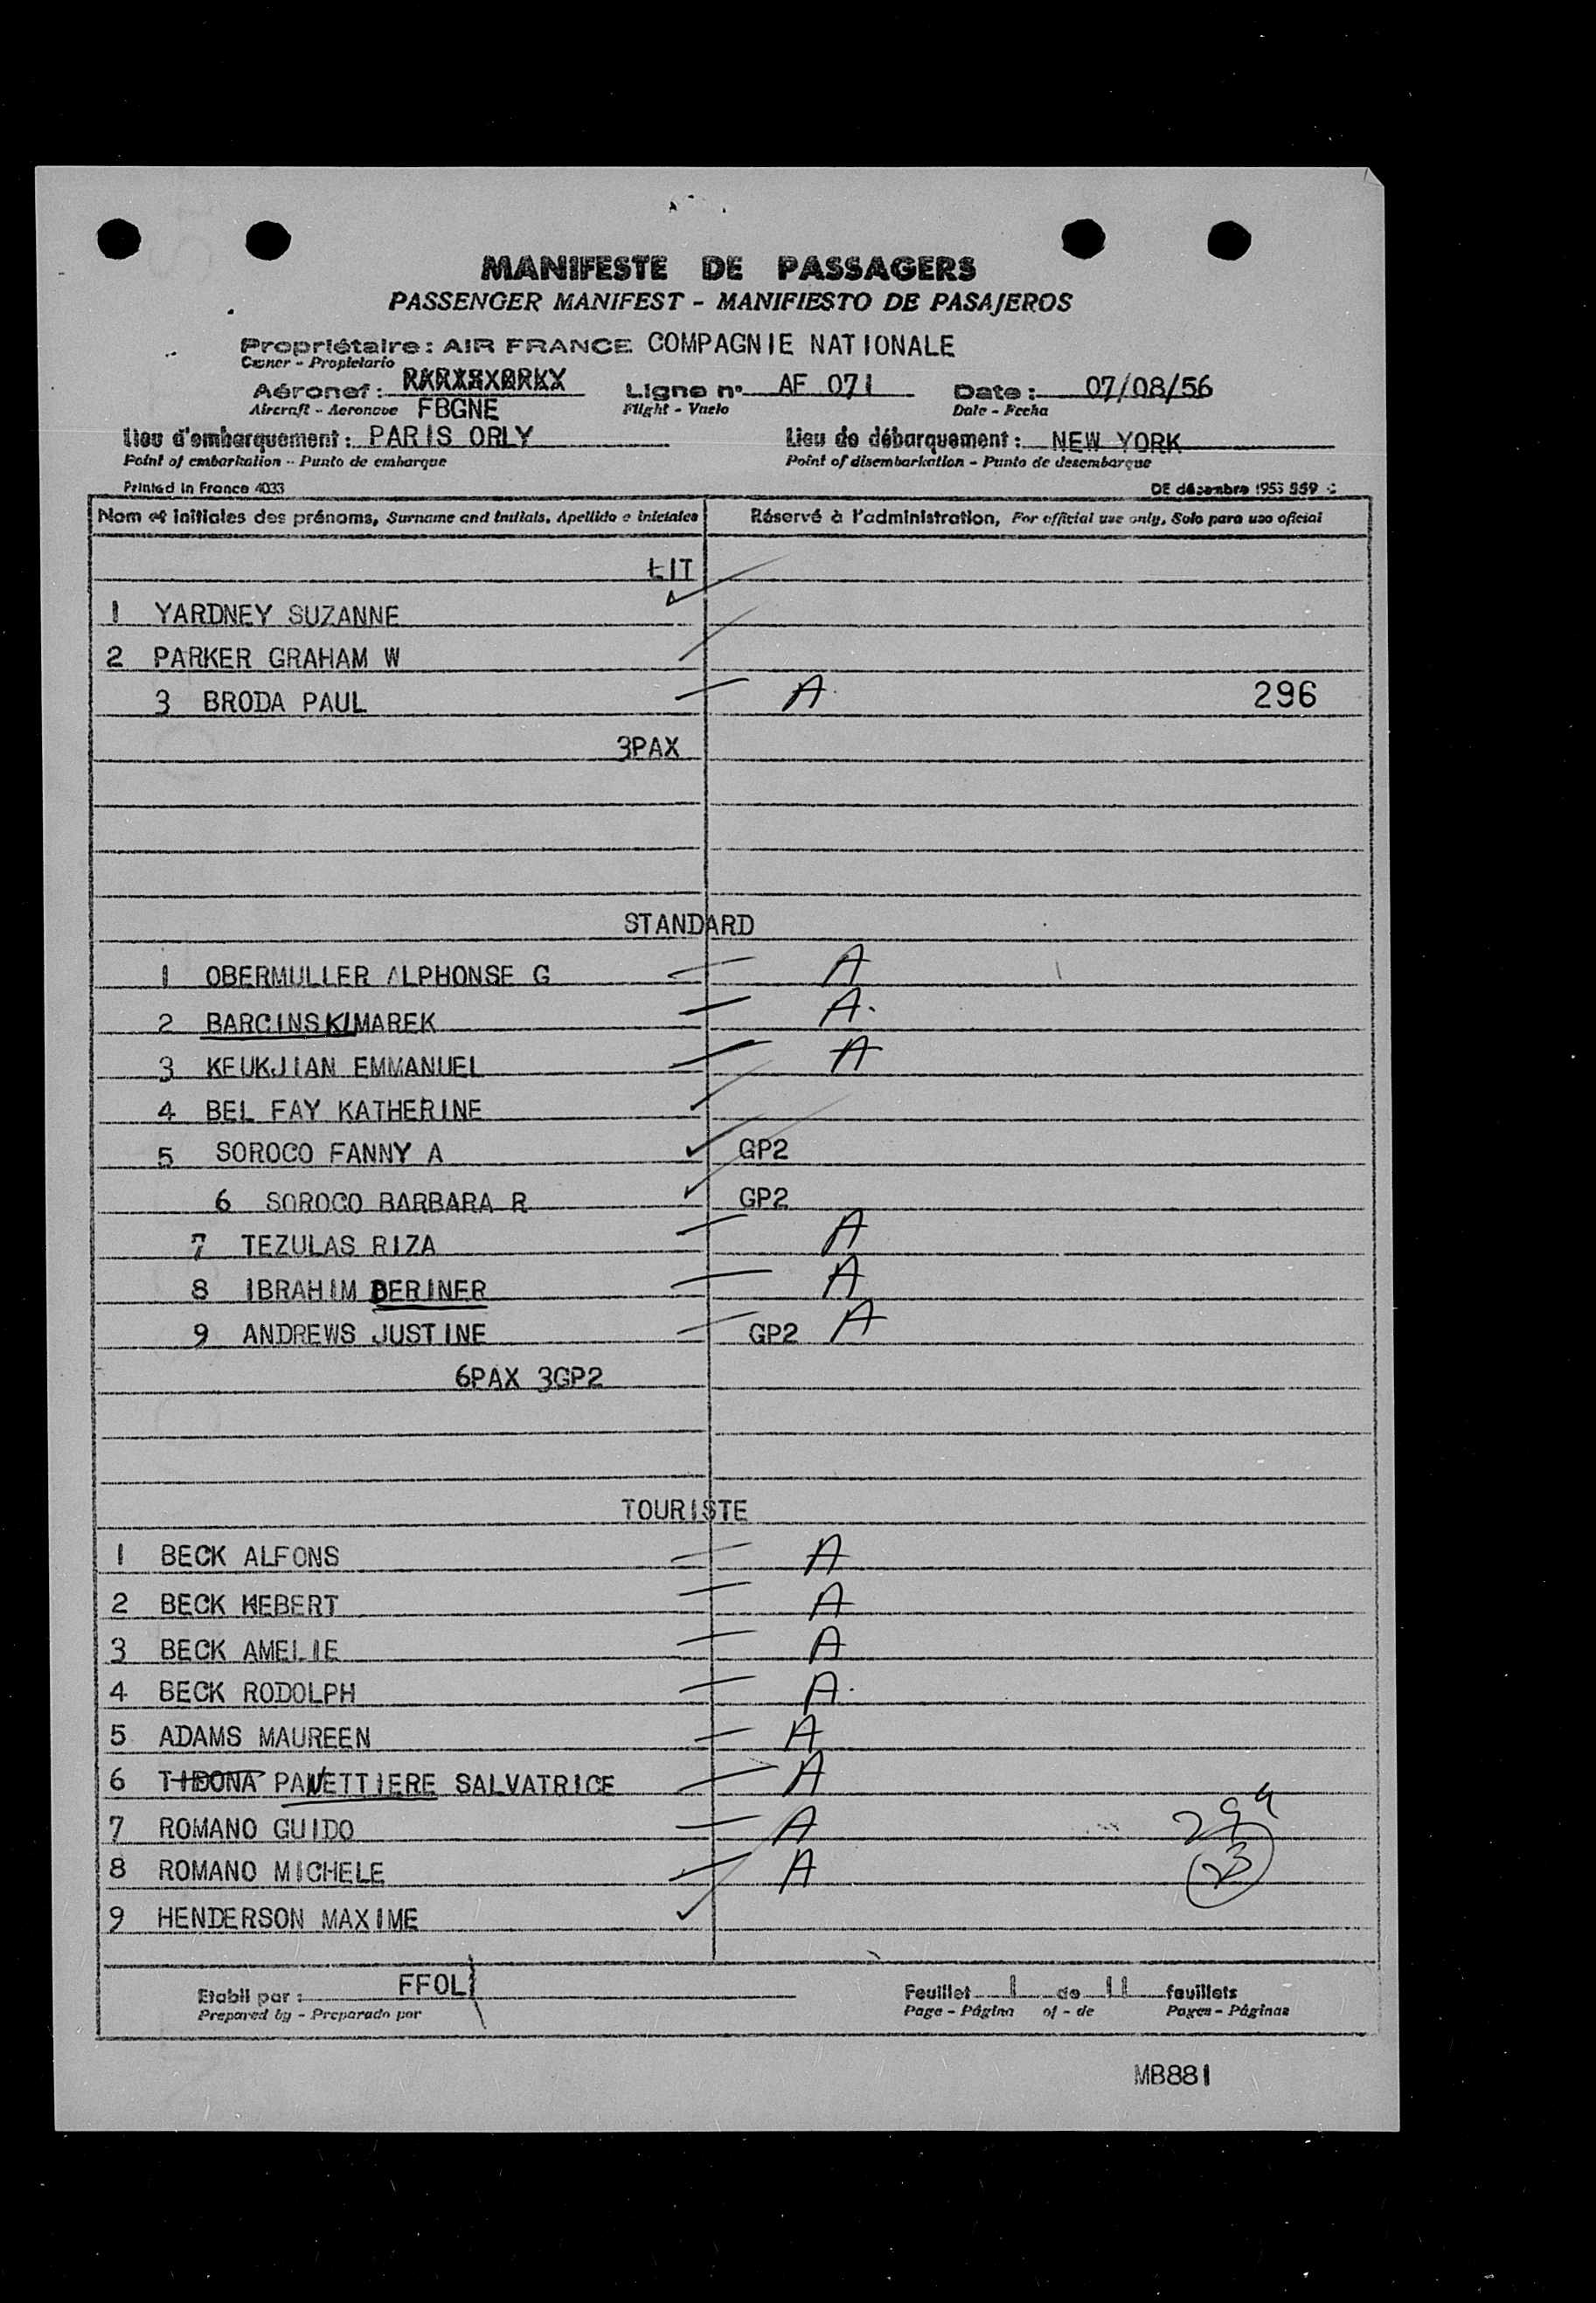 MANIFESTE DE PASSAGERS
PASSENGER MANIFEST - MANIFIESTO DE PASAJEROS
Propriétaire: AIR FRANCE COMPAGNIE NATIONALE
Owner - Propietario
Aéronef: Ligne n° AF 071 Date: 07/08/56
Aircraft - Aeronave FBGNE Flight - Vuelo Date - Fecha
Lieu d'embarquement: PARIS ORLY Lieu de débarquement: NEW YORK
Point of embarkation - Punto de embarque Point of disembarkation - Punto de desembarque
Printed in France 4033 DE décembre 1953 559
Nom et initiales des prénoms, Surname and initials, Apellido e iniciales Réservé à l'administration, For official use only, Solo para uso oficial
LIT
1 YARDNEY SUZANNE
2 PARKER GRAHAM W
3 BRODA PAUL A 296
3PAX
STANDARD
1 OBERMULLER ALPHONSE G A
2 BARCINSKI MAREK A
3 KEUKJIAN EMMANUEL A
4 BEL FAY KATHERINE
5 SOROCO FANNY A GP2
6 SOROCO BARBARA R GP2
7 TEZULAS RIZA A
8 IBRAHIM BERINER A
9 ANDREWS JUSTINE GP2 A
6PAX 3GP2
TOURISTE
1 BECK ALFONS A
2 BECK HEBERT A
3 BECK AMELIE A
4 BECK RODOLPH A
5 ADAMS MAUREEN A
6 TIDONA PANETTIERE SALVATRICE A
7 ROMANO GUIDO A
8 ROMANO MICHELE A 23
9 HENDERSON MAXIME
Etabli par: FFOL Feuillet 1 de 11 feuillets
Prepared by - Preparado por Page - Página of - de Pages - Páginas
MB881